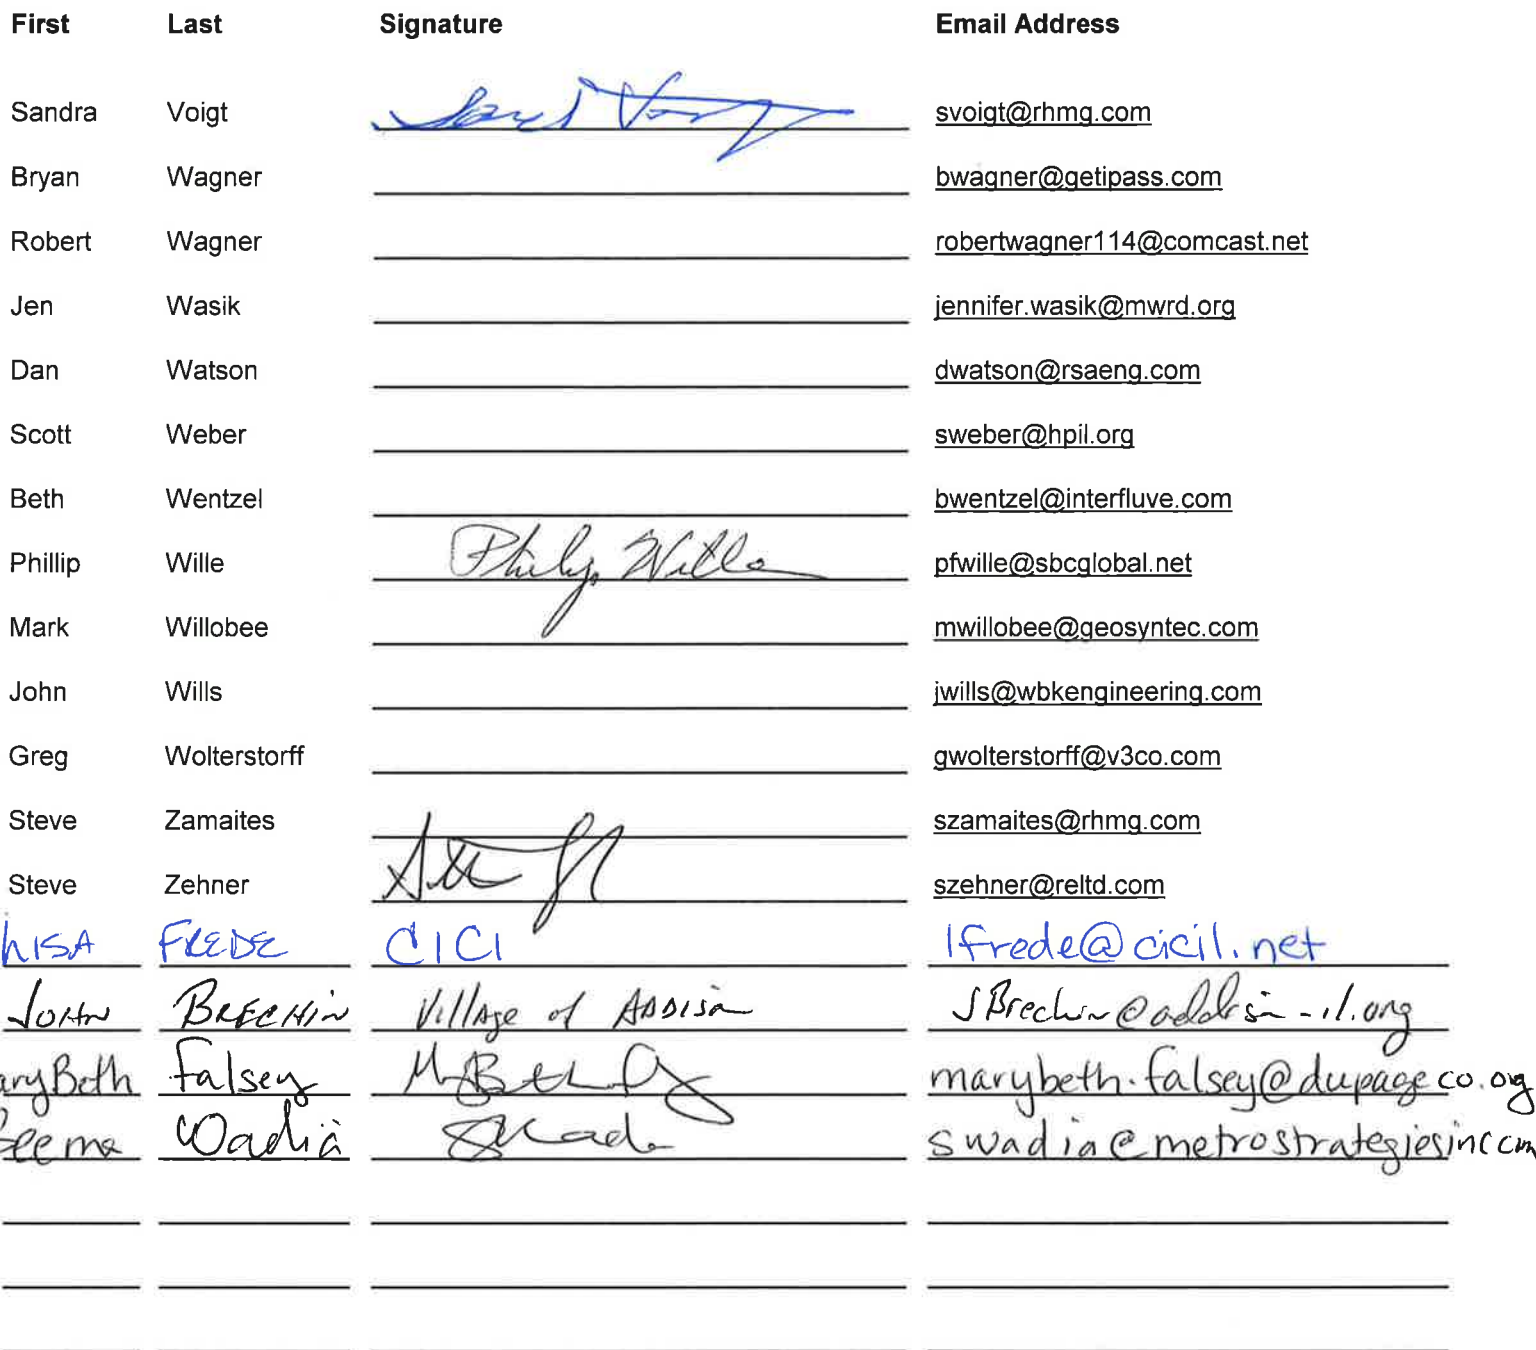 First Last Signature Email Address
Sandra Voigt svoigt@rhmg.com
Bryan Wagner bwagner@getipass.com
Robert Wagner robertwagner114@comcast.net
Jen Wasik jennifer.wasik@mwrd.org
Dan Watson dwatson@rsaeng.com
Scott Weber sweber@hpil.org
Beth Wentzel bwentzel@interfluve.com
Phillip Wille Philip Wille pfwille@sbcglobal.net
Mark Willobee mwillobee@geosyntec.com
John Wills jwills@wbkengineering.com
Greg Wolterstorff gwolterstorff@v3co.com
Steve Zamaites szamaites@rhmg.com
Steve Zehner szehner@reltd.com
LISA FREDE CICI lfrede@cicil.net
JOHN BRECHIN Village of ADDISON JBrechin@addison-il.org
aryBeth Falsey marybeth.falsey@dupageco.org
Seema Wadia swadia@metrostrategiesinc.com